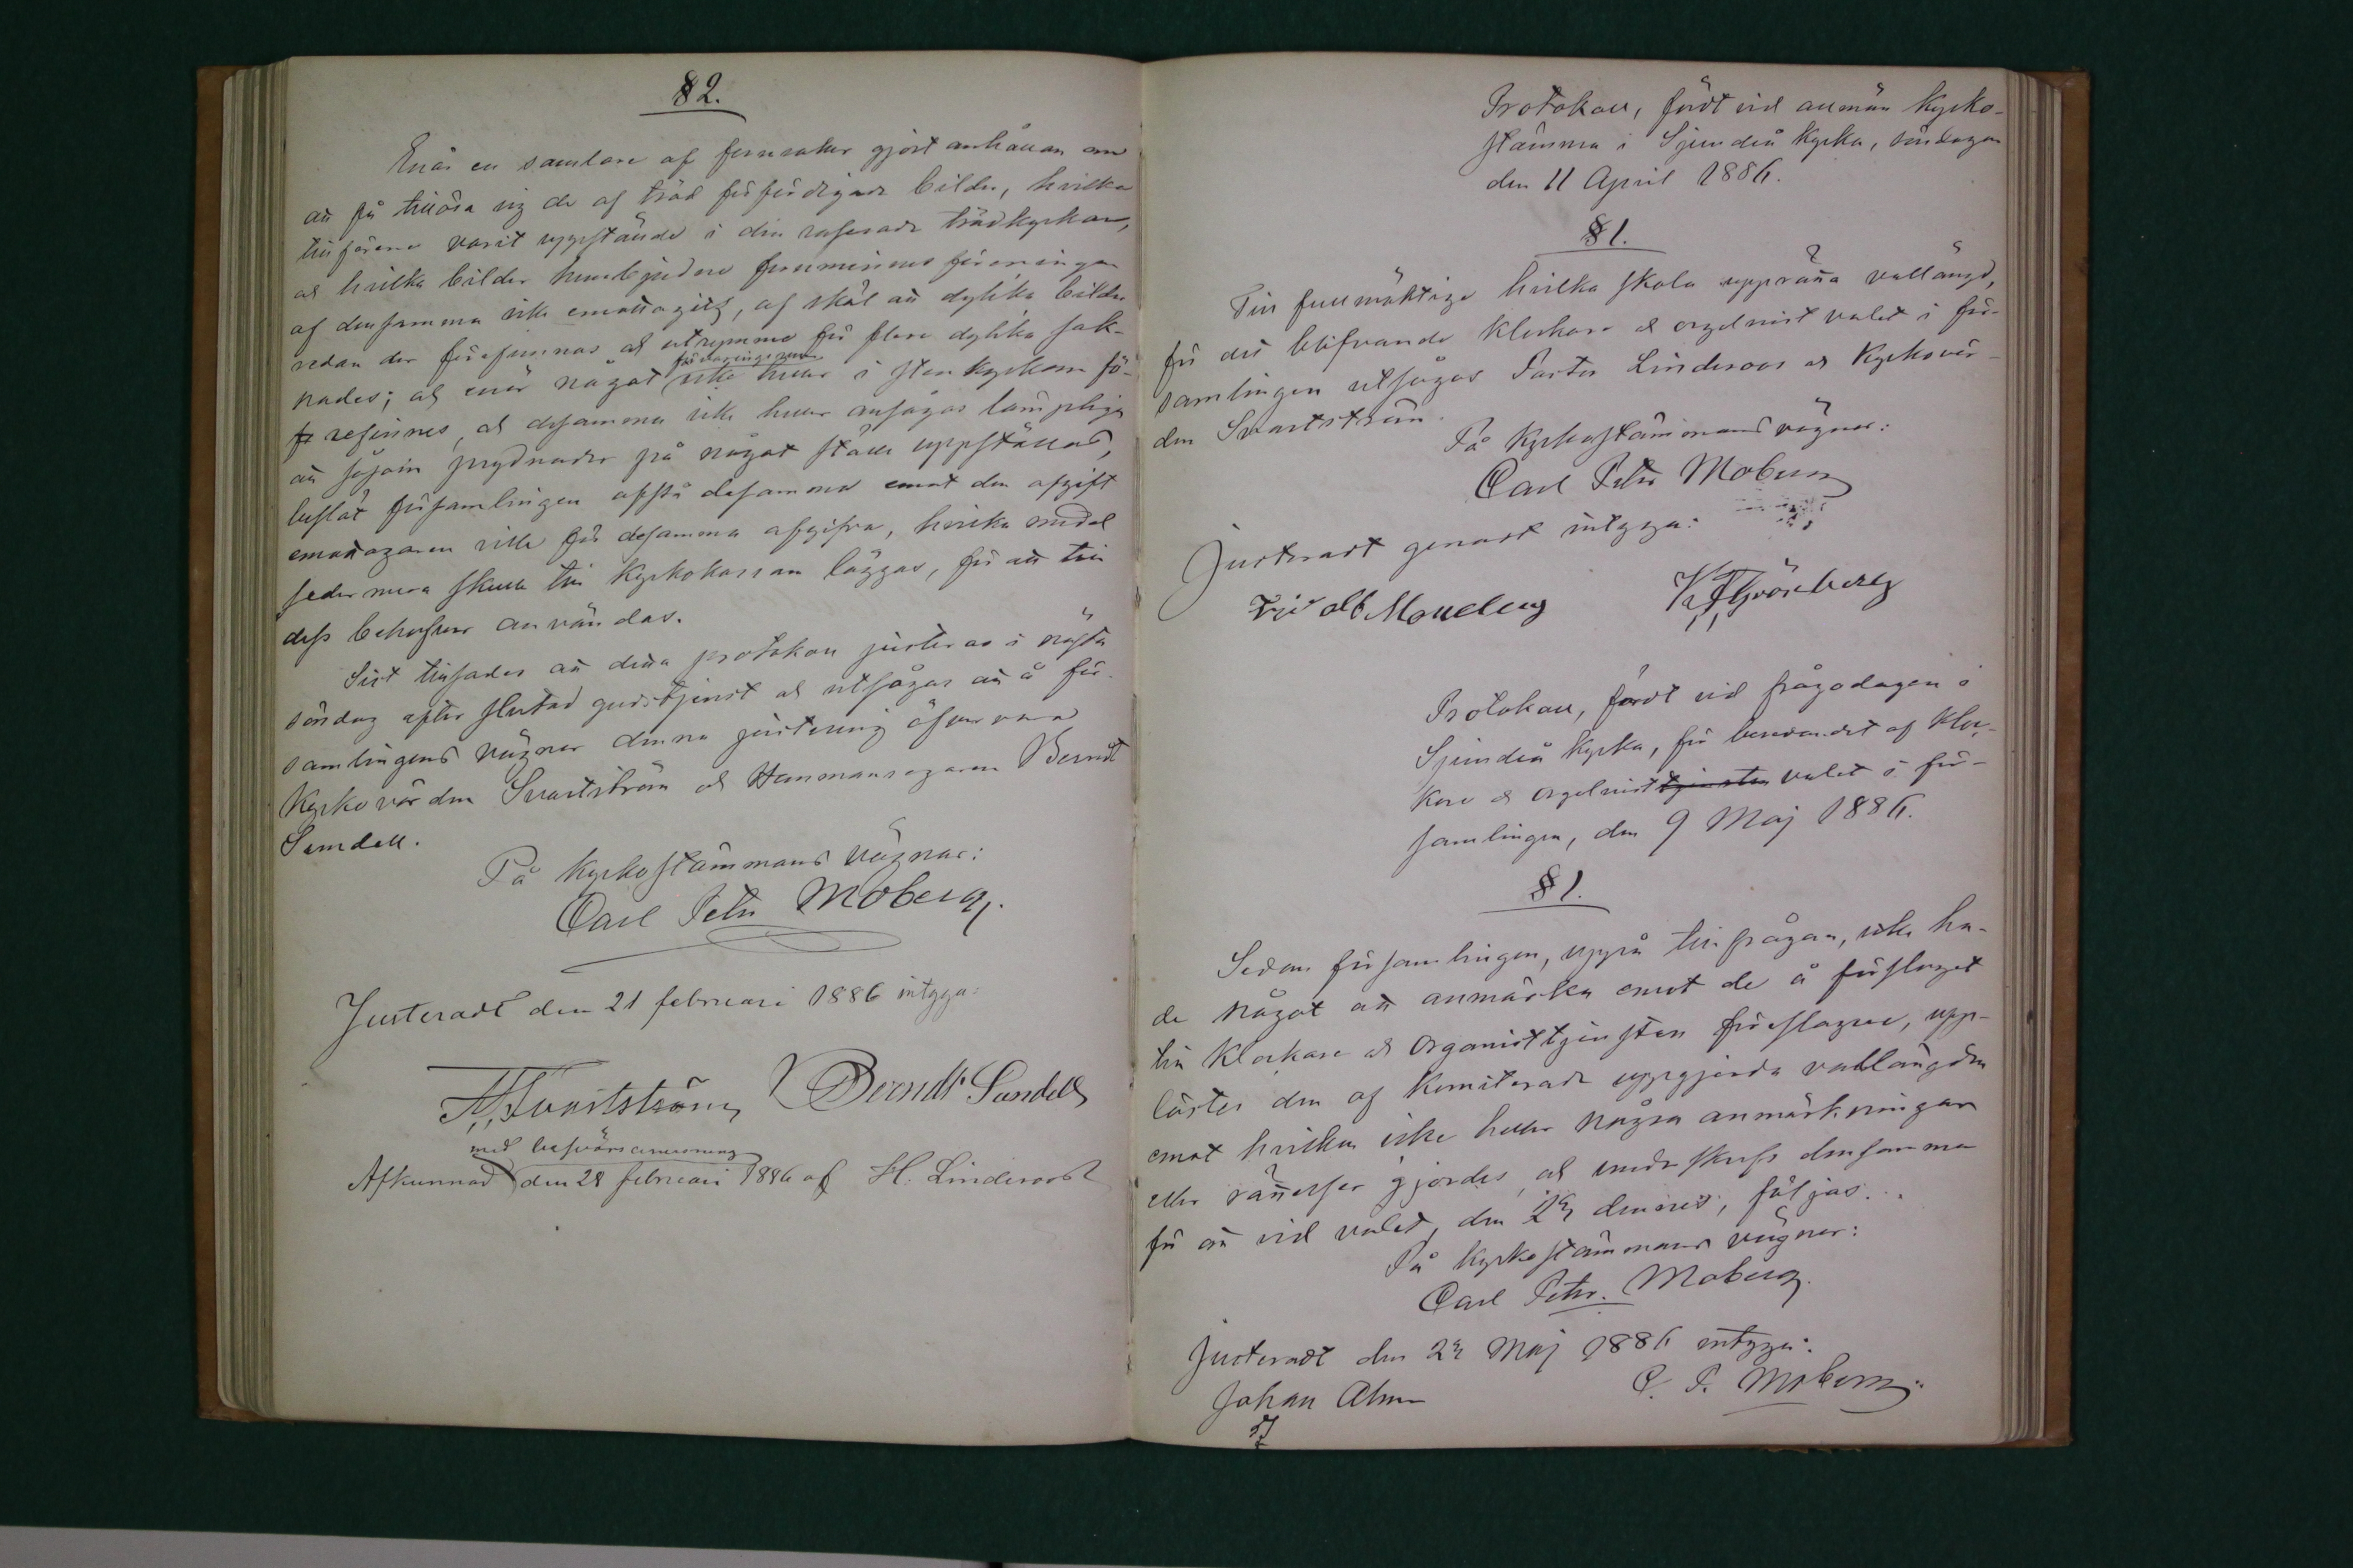 § 2.
Enär en samlare af fornsaker gjort anhållan om
att få tillösa sig de af träd förfärdigade bilder, hvilka
tillförene varit uppstälde i den raserade trädkyrkan,
och hvilka bilder hembjudne fornminnes föreningen
af densamma icke emottagits, af skäl att dylika bilder
redan der förefunnos och utrymme för flere dylika sak-
nades; och enär något förvaringsrum
icke heller i stenkyrkan fö-
refinnes, och desamma icke heller ansågos lämpliga
att såsom prydnader på något ställe uppställas,
beslöt församlingen afstå desamma emot den afgift
emottagaren ville för desamma afgifva, hvilka medel
sedermera skulle till Kyrkokassan läggas, för att till
dess behofver användas.
Sist tillsades att detta protokoll justeras i nästa
söndag efter slutad gudstjenst och utsågos att å för-
samlingens vägnar denna justering öfvervara
Kyrkovärden Svartström och Hemmansegaren Berndt
Sundell.
På Kyrkostämmans vägnar:
Carl Petr Moberg.
Justeradt den 21 februari 1886 intyga:
A. Svartström Berndt Sundell
med besvärsanvisning
Afkunnad den 28 februari 1886 af H. Linderoos
Protokoll, fördt vid allmän Kyrko-
stämma i Sjundeå Kyrka, söndagen
den 11 April 1886.
§ 1.
Till fullmäktige hvilka skola upprätta vallängd,
för det blifvande Klockare och orgelnist valet i för-
samlingen utsågos Pastor Linderoos och Kyrkovär-
den Svartström.
På Kyrkostämmans vägnar:
Carl Petr Moberg
Justeradt genast intyga:
K. F. Grönberg
Protokoll, fördt vid frågodagen i
Sjundeå Kyrka, för beredandet af Kloc-
kare och orgelnist tjensten valet i för-
samlingen, den 9 Maj 1886.
§ 1.
Sedan församlingen, uppå tillfrågan, icke ha-
de något att anmärka emot de å förslaget
till Klockare och Organisttjensten föreslagne, upp-
lästes den af Komiterade uppgjorda vallängden
emot hvilken icke heller några anmärkningar
eller rättelser gjordes, och underskrefs densamma
för att vid valet, den 23 dennes, följas.
På Kyrkostämmans vägnar:
Carl Petr. Moberg.
Justeradt den 23 Maj 1886 intyga:
Johan Alm C. P. Moberg.